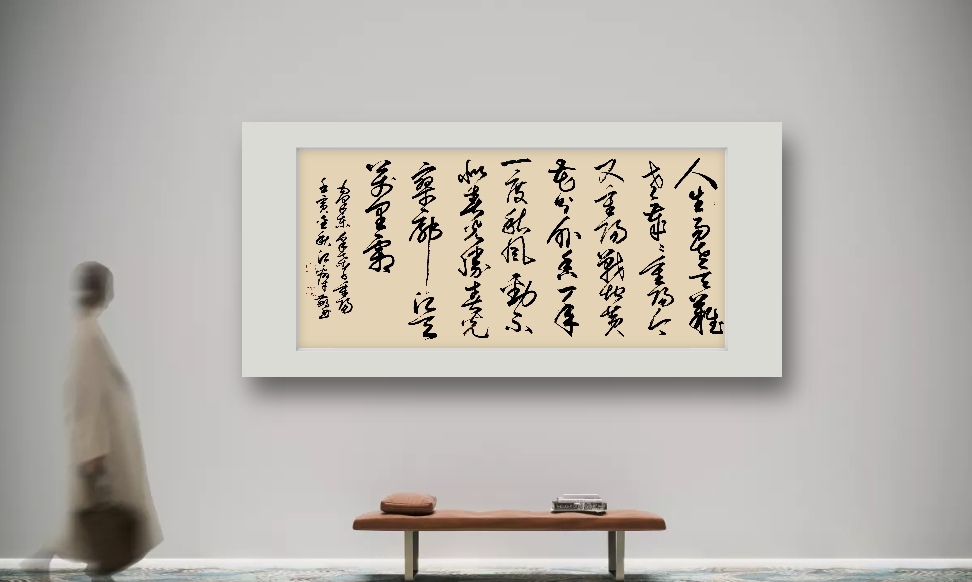 人生易老天難
老歲〻重陽今
又重陽戰地黃
花分外香一年
一度秋風勁不
似春光勝春光
寥廓江天
萬里霜
毛澤東采桑子重陽
壬寅金秋